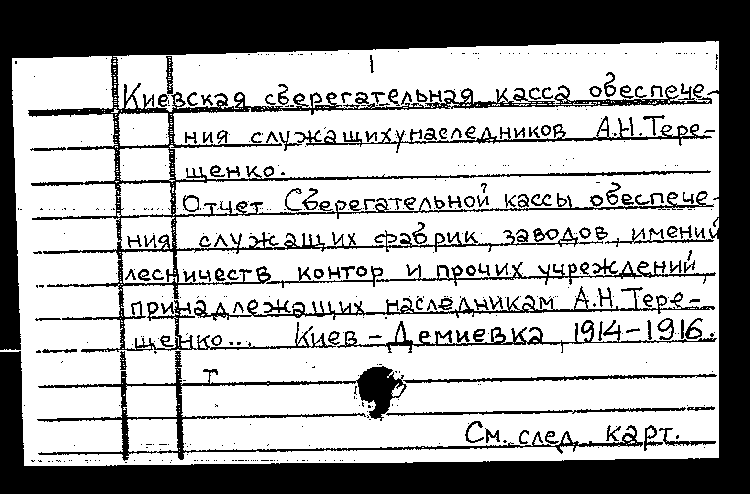 Киевская сберегательная касса обеспече-
ния служащих у наследников А.Н. Тере-
щенко.
Отчет Сберегательной кассы обеспече-
ния служащих фабрик, заводов, имений
лесничеств, контор и прочих учреждений,
принадлежащих наследникам А.Н. Тере-
щенко... Киев-Демиевка, 1914-1916.
т
См. след. карт.